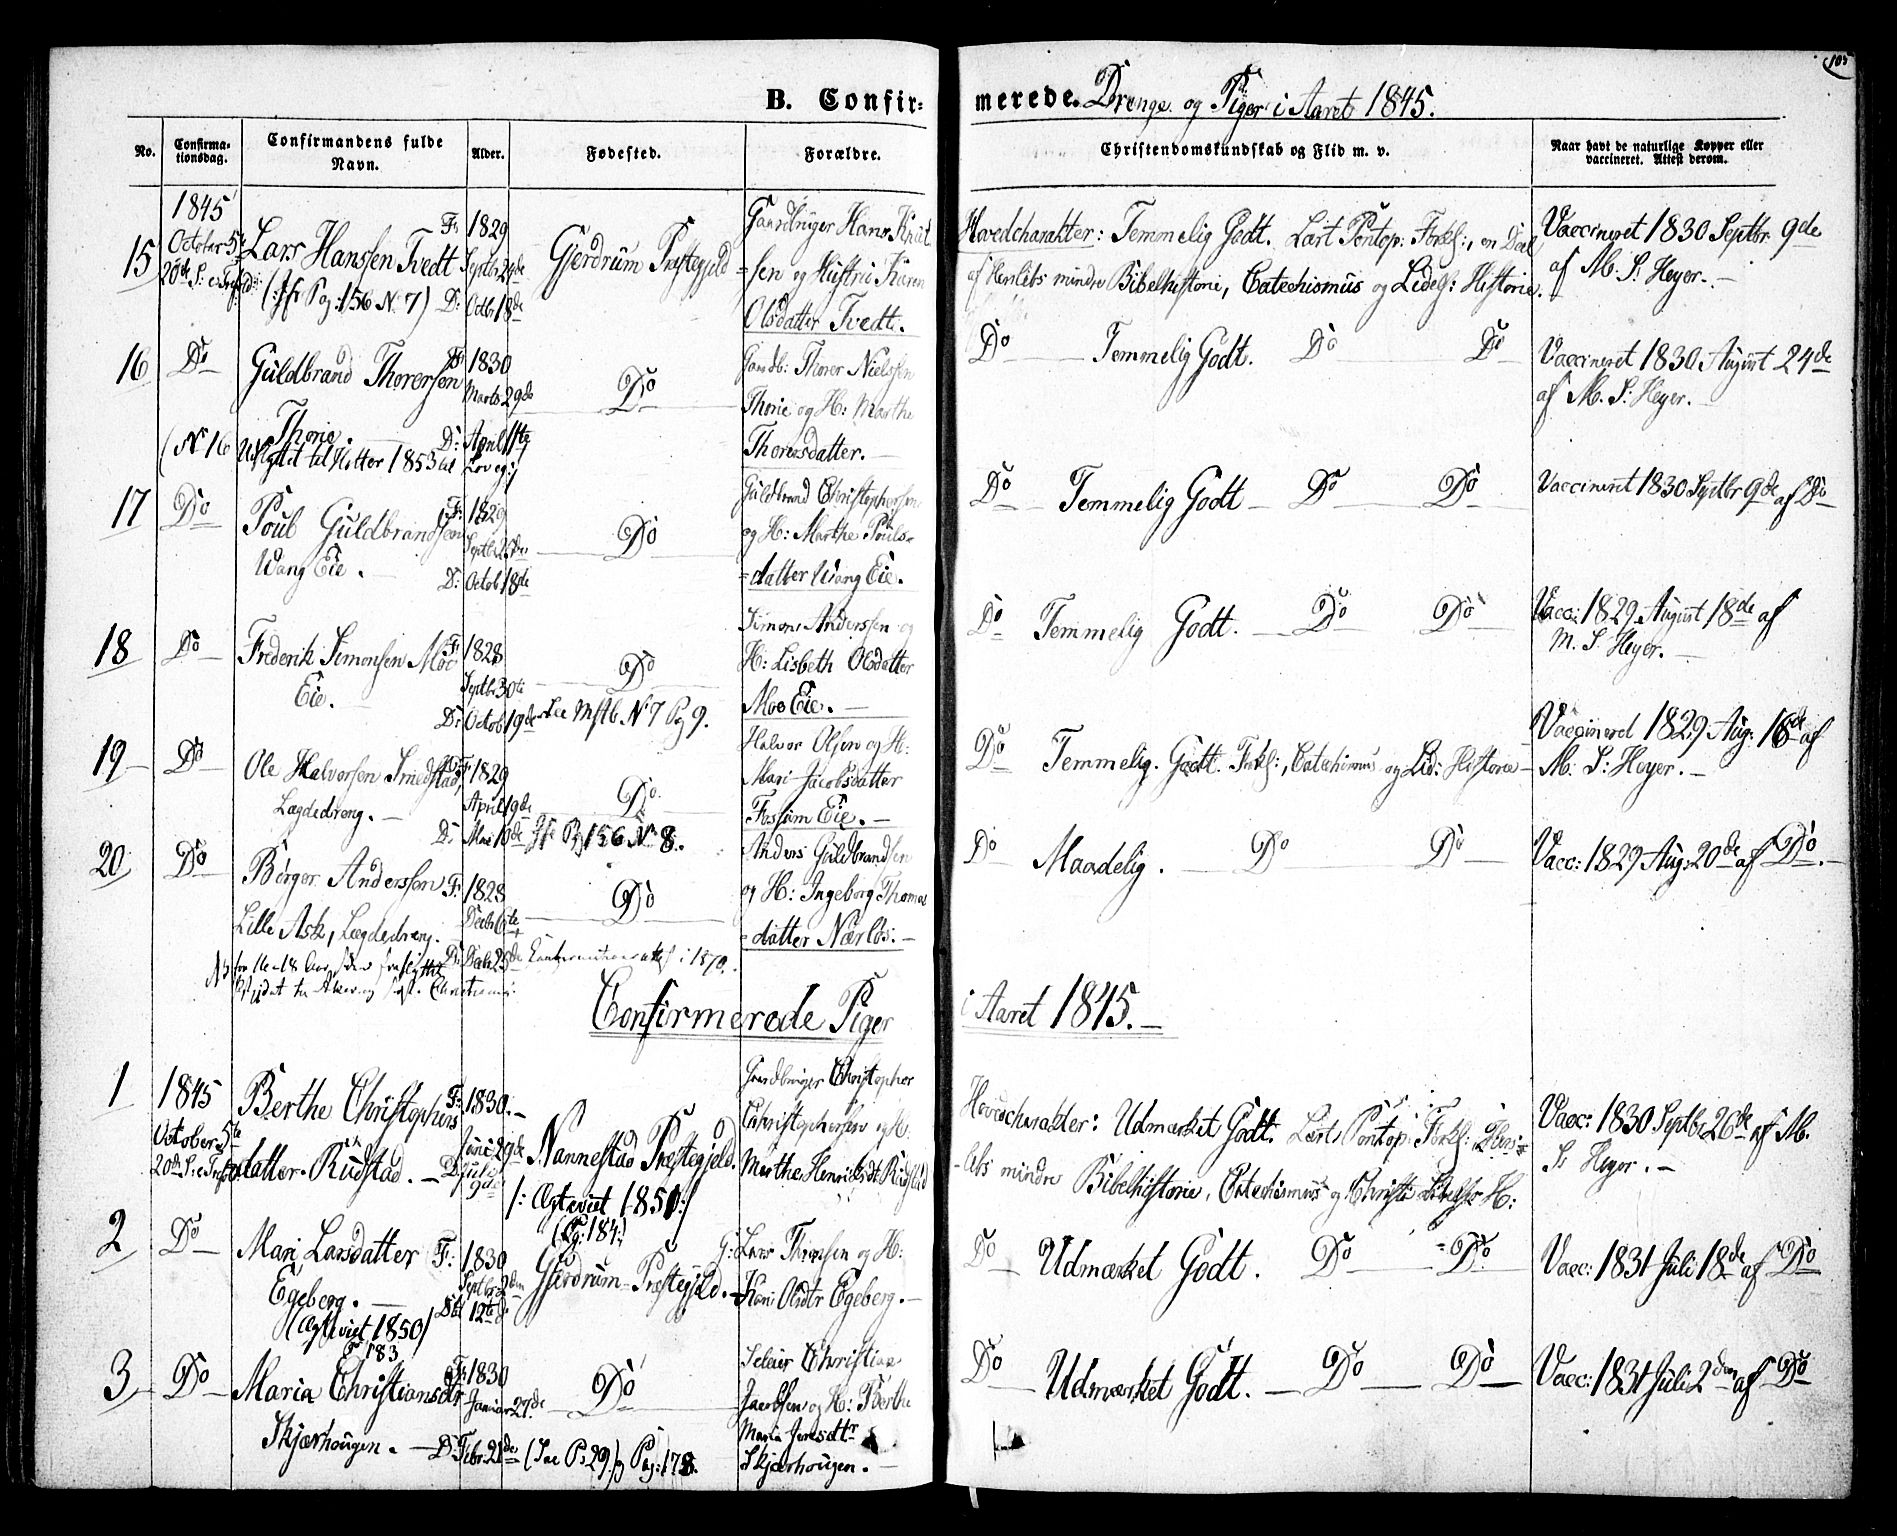 105
B. Confir-
merede. Drenge og Piger i Aaret 1845.
No.
Confirma-
tionsdag.
Confirmandens fulde
Navn.
Alder.
Fødested.
Forældre.
Christendomskundskab og Flid m. v.
Naar havt de naturlige Kopper eller
vaccineret. Attest derom.
15
1845
October 5te
20de S: e: Trefold:
Lars Hanssen Tvedt
(:Jfr Pag: 156 N. 7)
F: 1829
Septbr 29de
D: Octb: 18de
Gjerdrum Præstegjeld
Gaardbruger Hans Knut
=sen og Hustru Karen
Olsdatter Tvedt.
Hovedcharakter: Temmelig Godt. Lært Pontop: Forkl:, en Deel
af Herslebs mindre Bibelhistorie, Catechismus og Lidels: Historie.
Vaccineret 1830 Septbr 9de
af M. S: Heyer.
16
Do
Guldbrand Thorersen
Thorie.
F: 1830
Marts 29de
D: April 11te
Do
Gaardb: Thorer Nielssen
Thorie og H: Marthe
Thorersdatter.
Do Temmelig Godt. Do Do
Vaccineret 1830 August 24de
af M. S: Heyer.
(N 16 Udflyttet til Hitter 1853
17
Do
Poul Guldbrandsen
Wang Eie.
F: 1829
Septbr
D: Octob 18de
Do
Guldbrand Christophersen
og H: Marthe Pouls-
=datter Wang Eie.
Do Temmelig Godt Do Do
Vaccineret 1830 Septbr 9de af Do
18
Do
Frederik Simonsen Moe
Eie.
F: 1828
Septbr 30te
D: Octob 19de
Do
See Mstb. N 7 Pag 9.
Simon Anderssen og
H: Lisbeth Olsdatter
Moe Eie.
Do Temmelig Godt. Do Do
Vacc: 1829 August 18de af
M. S. Heyer.
19
Do
Ole Halvorsen Smedstad,
Lægdedreng.
F: 1829
April 19de
D: Mai 10de
Do
Jfr Pag 156 N 8.
Halvor Olsen og H:
Mari Jacobsdatter
Fossum Eie.
Do Temmelig Godt. Forkl:, Catechismus og Lid: Historie
Vaccinered 1829 Aug: 18de af
M: S: Heyer.
20
Do
Børger Anderssen
Lille Ask, Lægdedreng.
F: 1828
Decbr 6te
D: Decb 25de
Do
Confirmationsattest i 1870.
Anders Guldbrandsen
og H: Ingeborg Thomas
=datter Nærløs.
Do Maadelig. Do Do
Vacc: 1829 Aug: 20de af Do.
Confirmerede Piger
i Aaret 1845.
1
1845
October 5te
20de S: e: Trefold:
Berthe Christophers
datter Rudstad.
F: 1830.
Juni 29de
D: Juli
9de
Nannestad Præstegjeld.
/: Ægteviet 1851:/
(Pg: 184:)
Gaardbruger Christopher
Christophersen og H:
Marthe Henriksdt Rudstad
Hovedcharakter: Udmærket Godt. Lært Pontop: Forkl: Hers=
=lebs mindre Bibelhistorie, Catechismus og Christi Lidelses H:
Vacc: 1830 Septbr 26de af M.
S: Heyer.
2
Do
Mari Larsdatter
Egeberg.
(Ægteviet 1850/
P 183
F: 1830
Septbr 2den
Dbt 12te
Gjerdrum Præstegjeld.
G: Lars Thorsen og H:
Kari Olsdtr Egeberg.
Do Udmærket Godt. Do Do
Vacc: 1831 Juli 18de af Do
3
Do
Maria Christiansdtr
Skjærhougen.
F: 1830
Januar 27de
D: Febr: 21de
Do
(See P: 29.) Pag: 178.
Seleur Christian
Jacobsen og H: Berthe
Maria Jensdtr
Skjærhougen.
Do Udmærket Godt. Do Do
Vacc: 1831 Juli 2den af Do